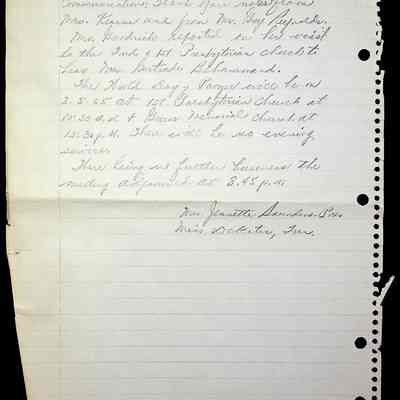 Communications, Thank You notes from
Mrs. and from Mr. Guy Reynolds.
Mrs. reported on her visit
to the 2nd & 1st Presbyterian church to
hear Mrs. Gertrude
The World Day of Prayer will be on
3.5.65 at 1st Presbyterian Church at
10:30 a.m & Grace Memorial Church at
1:30 p.m. There will be no evening
services
There being no further business the
meeting adjourned at 8.45 p.m
Mrs. Jeanette Saunders, Pres
Miss.